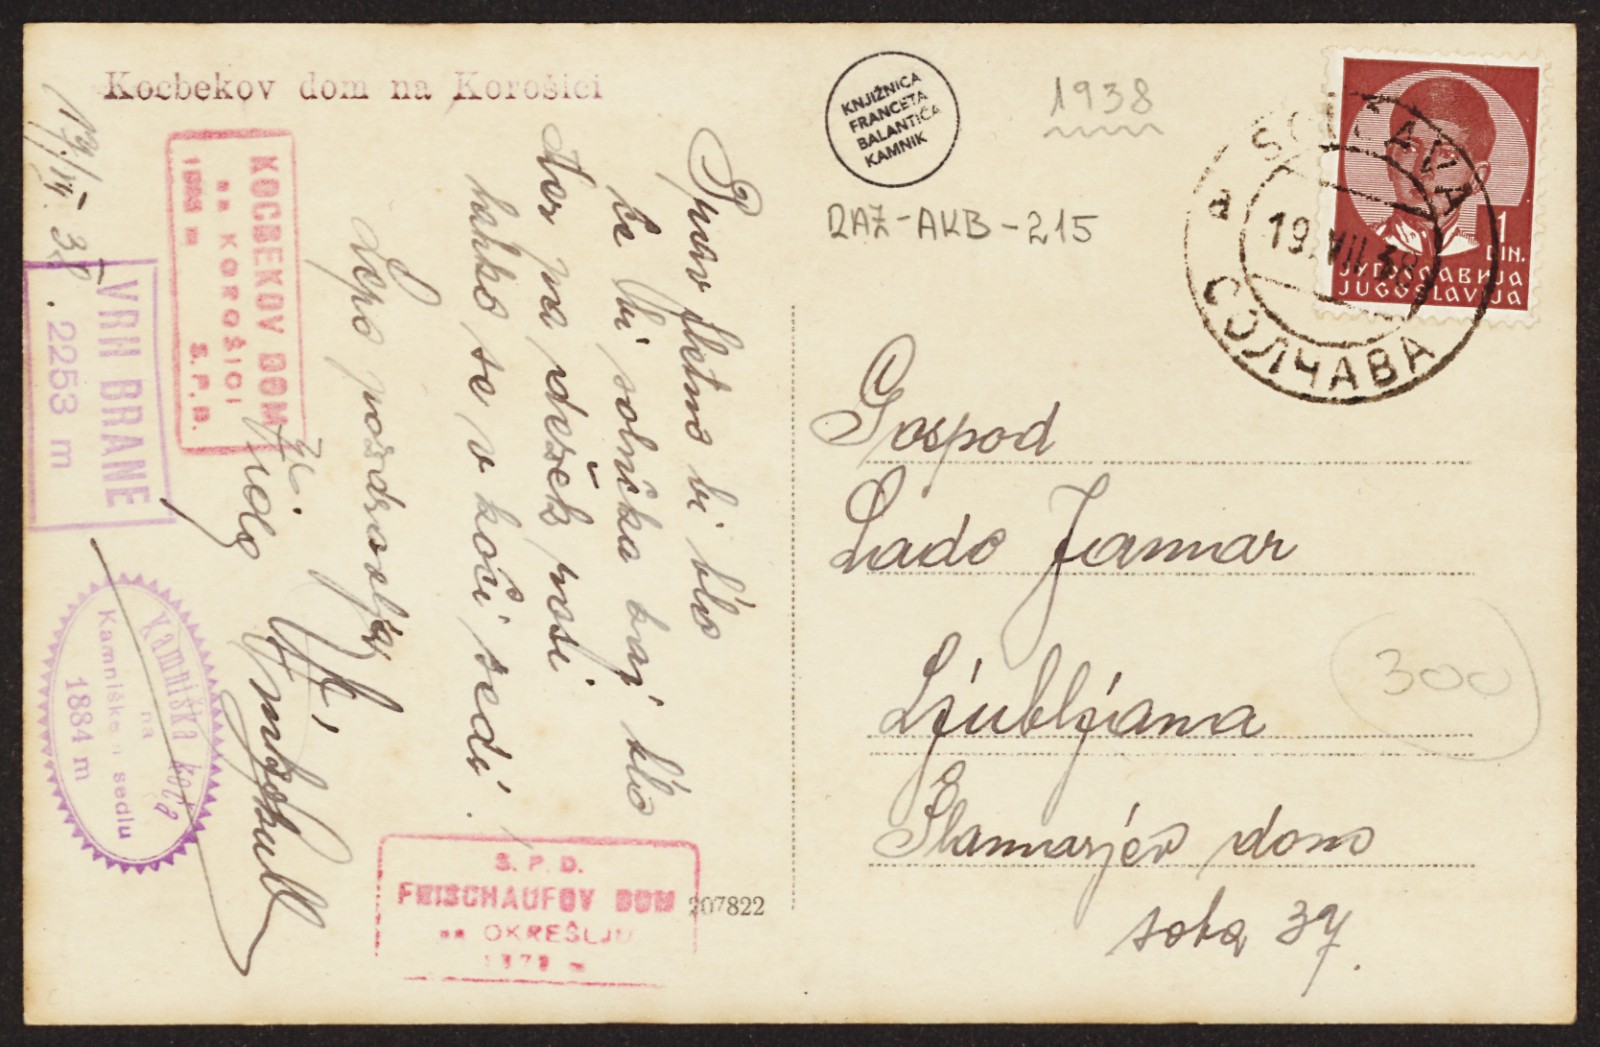 Kocbekov dom na Korošici
KOCBEKOV DOM
na KOROŠICI
S. P. D.
VRH BRANE
2253 m
Kamniška koča
na
Kamniškem sedlu
1884 m
Prav fletno bi blo
če bi solnčka kaj blo
ker pa dežek rosi
lahko se v koči sedi.
Lepe pozdrave
S. P. D.
FRISCHAUFOV DOM
na OKREŠLJU
207822
KNJIŽNICA
FRANCETA
BALANTIČA
KAMNIK
1938
RAZ-AKB-215
SOLČAVA
a
19.VII.38
СОЛЧАВА
1
DIN.
ЈУГОСЛАВИЈА
JUGOSLAVIJA
Gospod
Lado Jamar
Ljubljana
Planinarjev dom
soba 37.
300